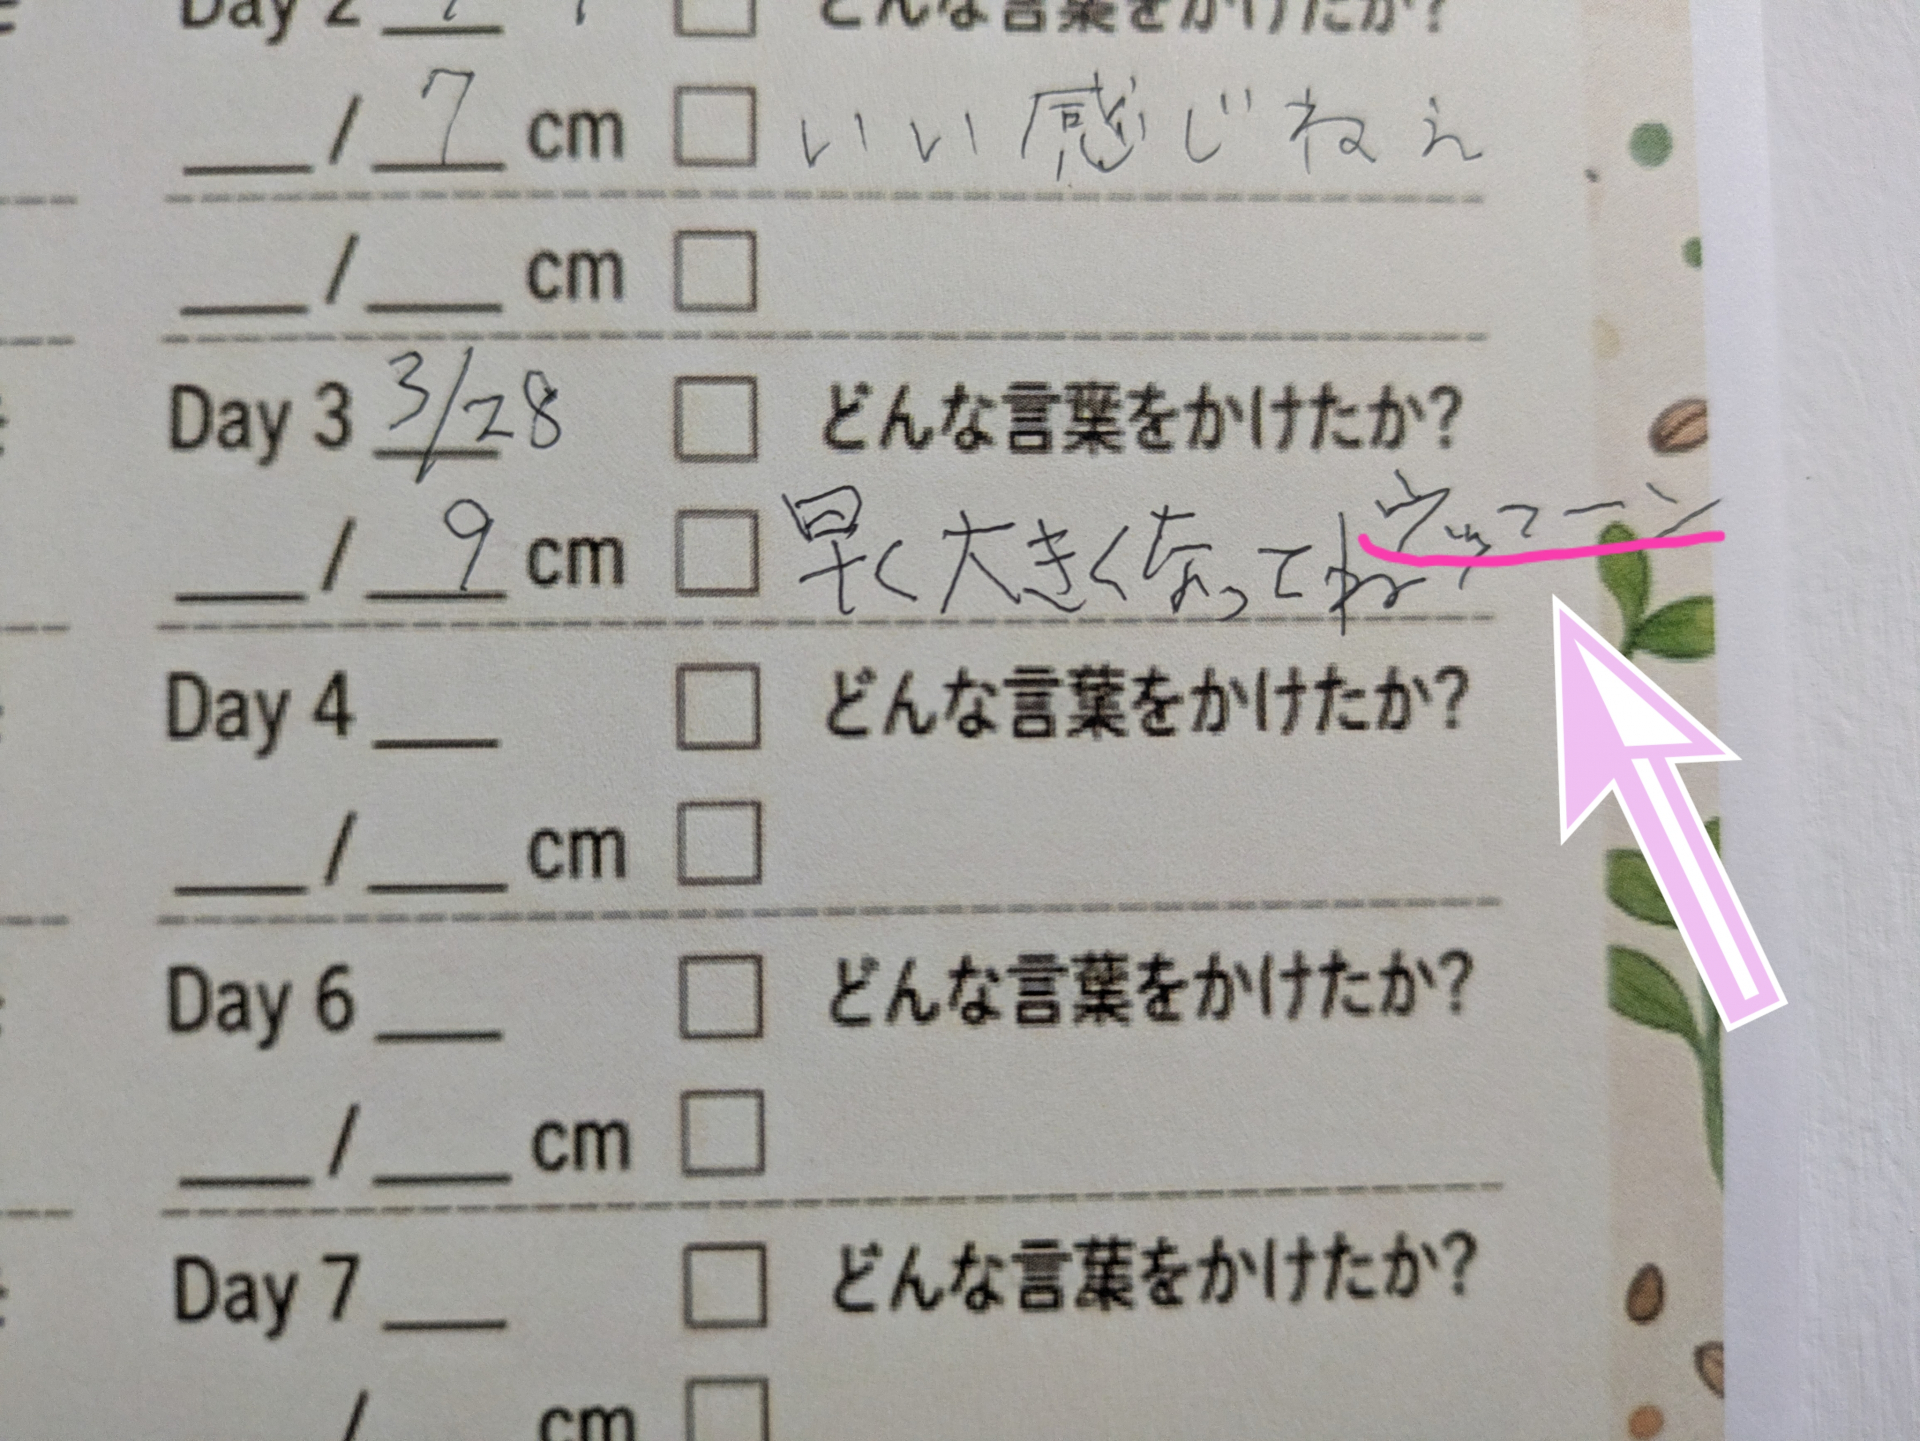 Day 2 どんな言葉をかけたか?
/ 7 cm いい感じねぇ
/ cm
Day 3 3/28 どんな言葉をかけたか?
/ 9 cm 早く大きくなってね
Day 4 どんな言葉をかけたか?
/ cm
Day 6 どんな言葉をかけたか?
/ cm
Day 7 どんな言葉をかけたか?
/ cm